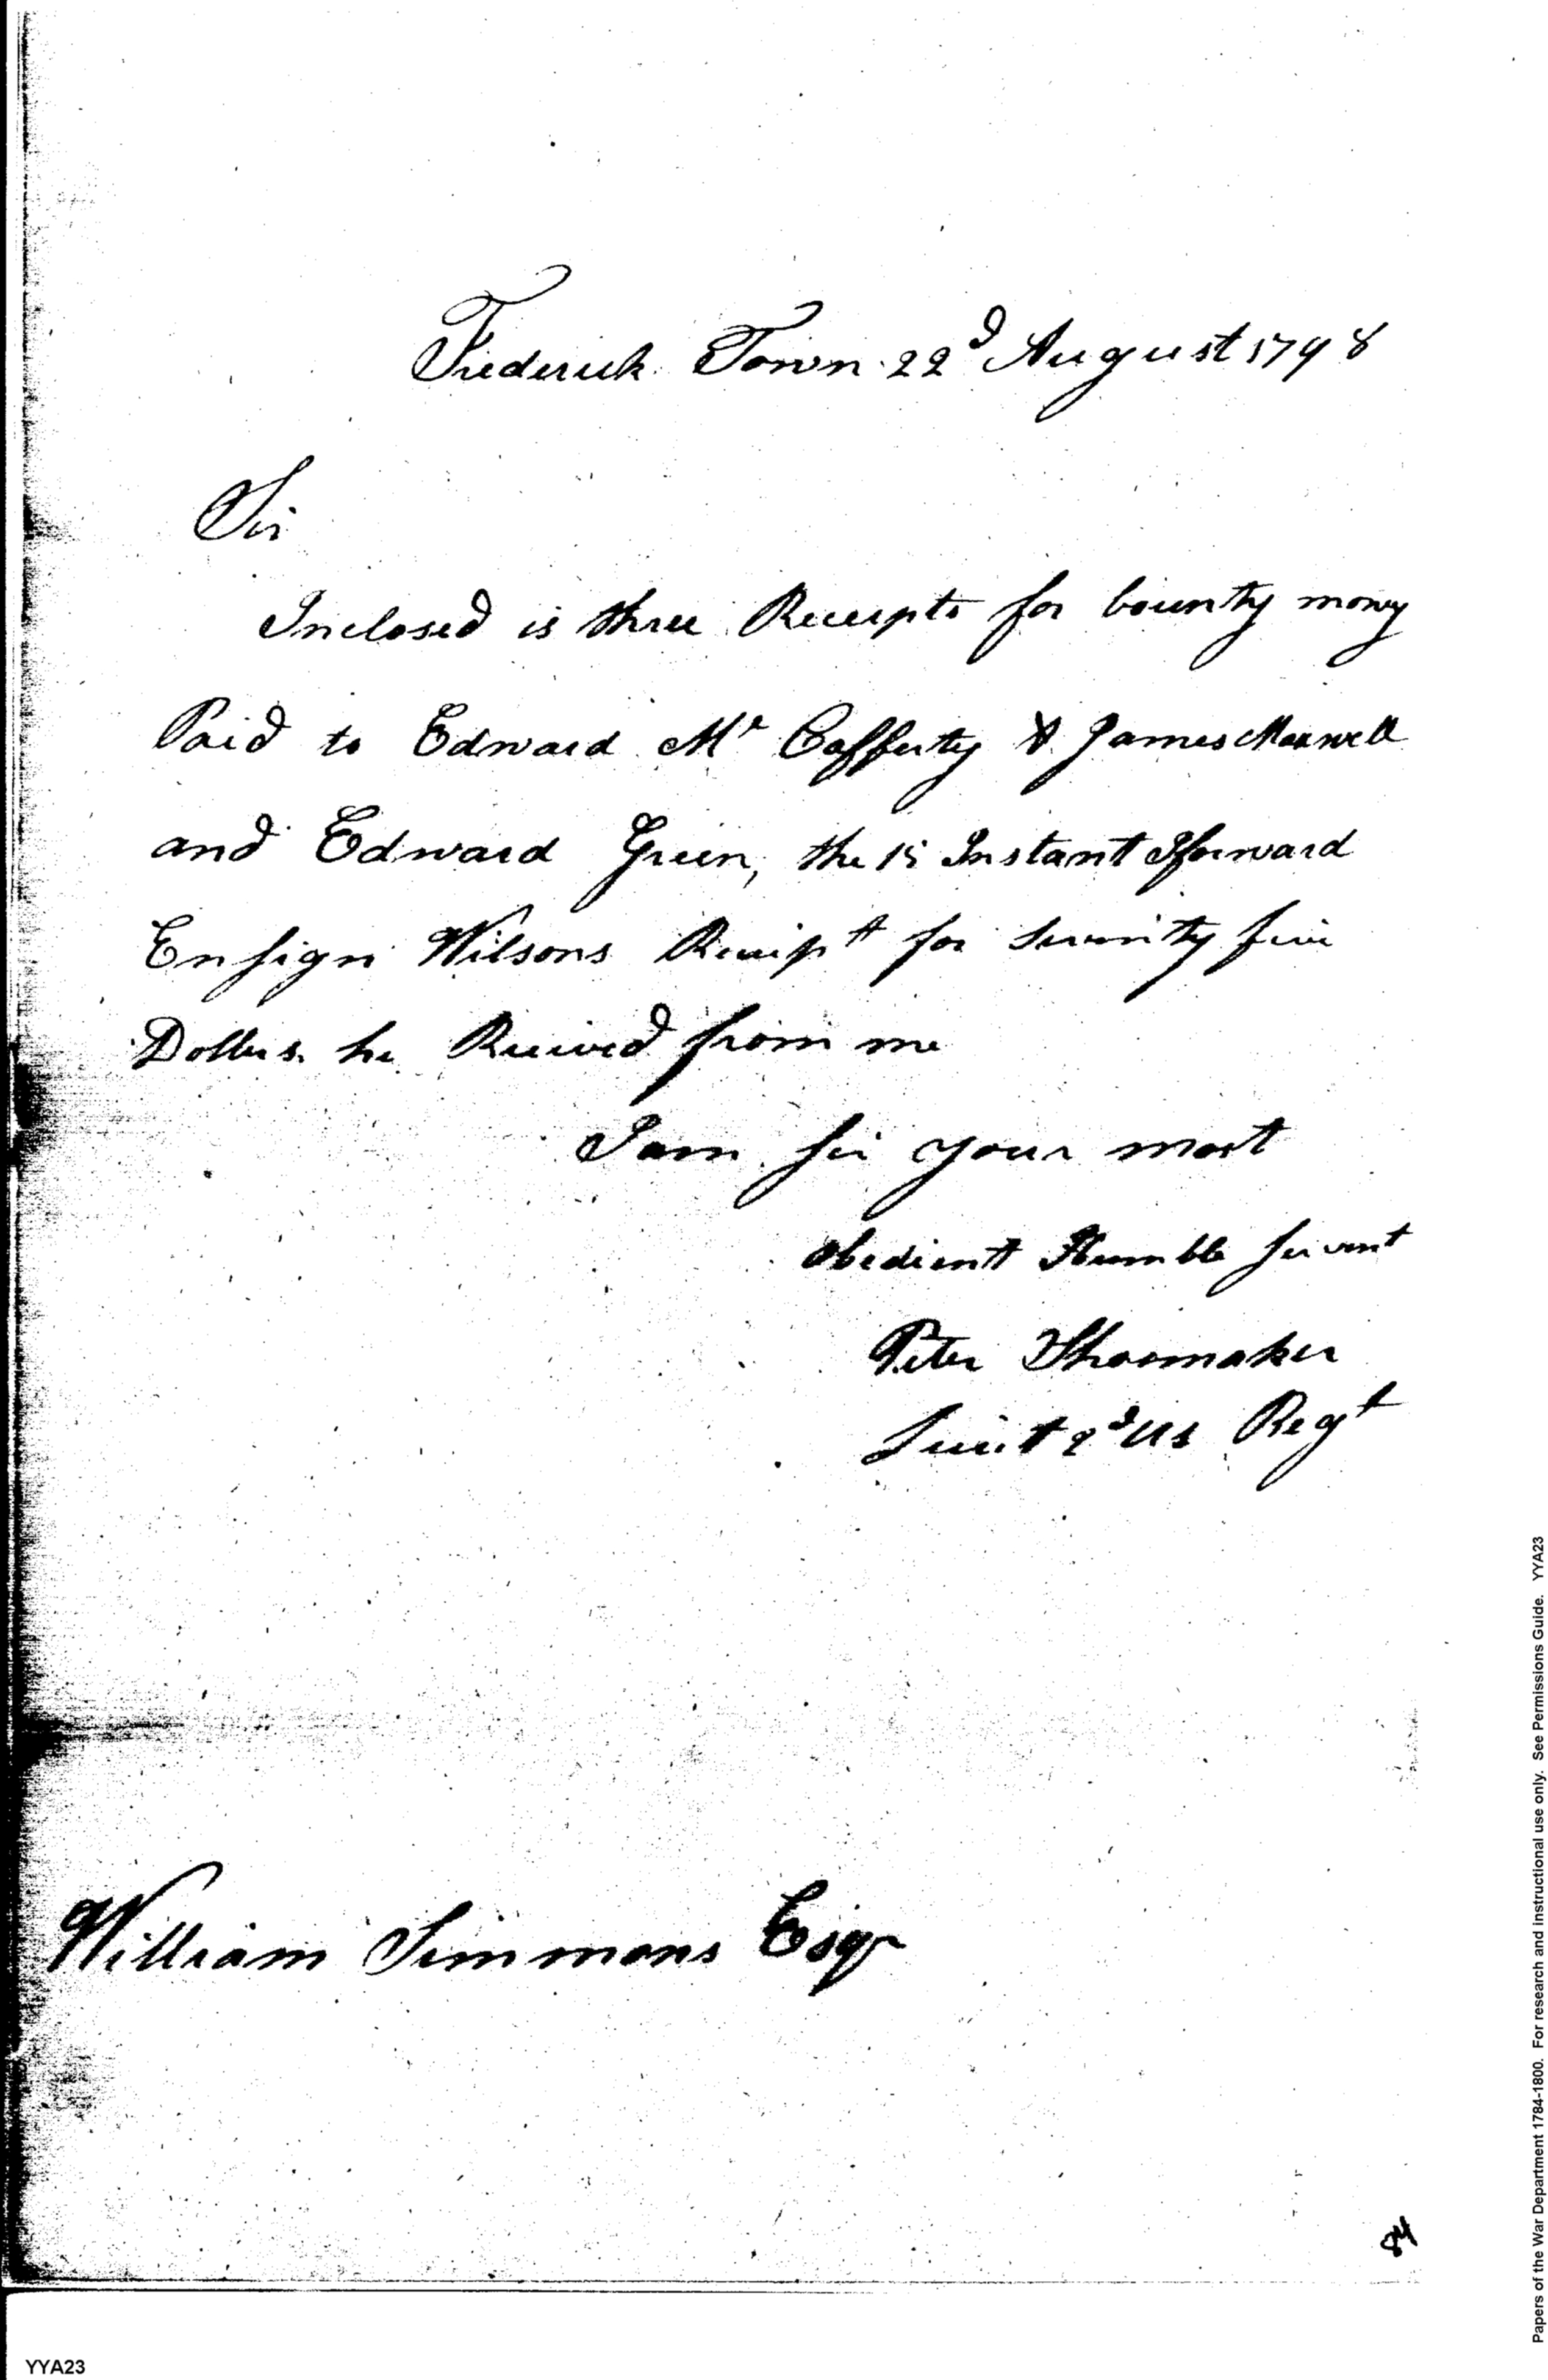 Frederick Town 22d August 1798
Sir
Inclosed is three Receipts for bounty mony
Paid to Edward Mc Cafferty & James Maxwell
and Edward Green, the 15 Instant I forward
Ensign Wilsons Receipt for seventy five
Dollers he Received from me
I am sir your most
obedient Humble servent
Peter Shoemaker
Lieut 2d US Regt
William Simmons Esqr
84
YYA23
Papers of the War Department 1784-1800. For research and instructional use only. See Permissions Guide. YYA23